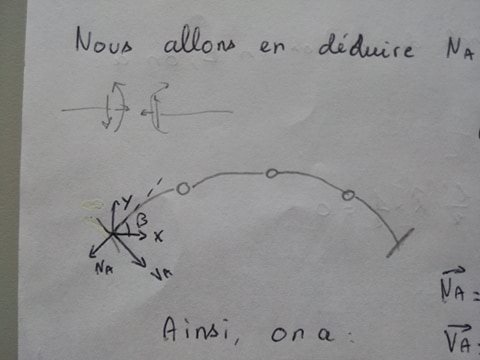 Nous allons en déduire NA
Y
β
X
NA
VA
NA =
Ainsi, on a :
VA =